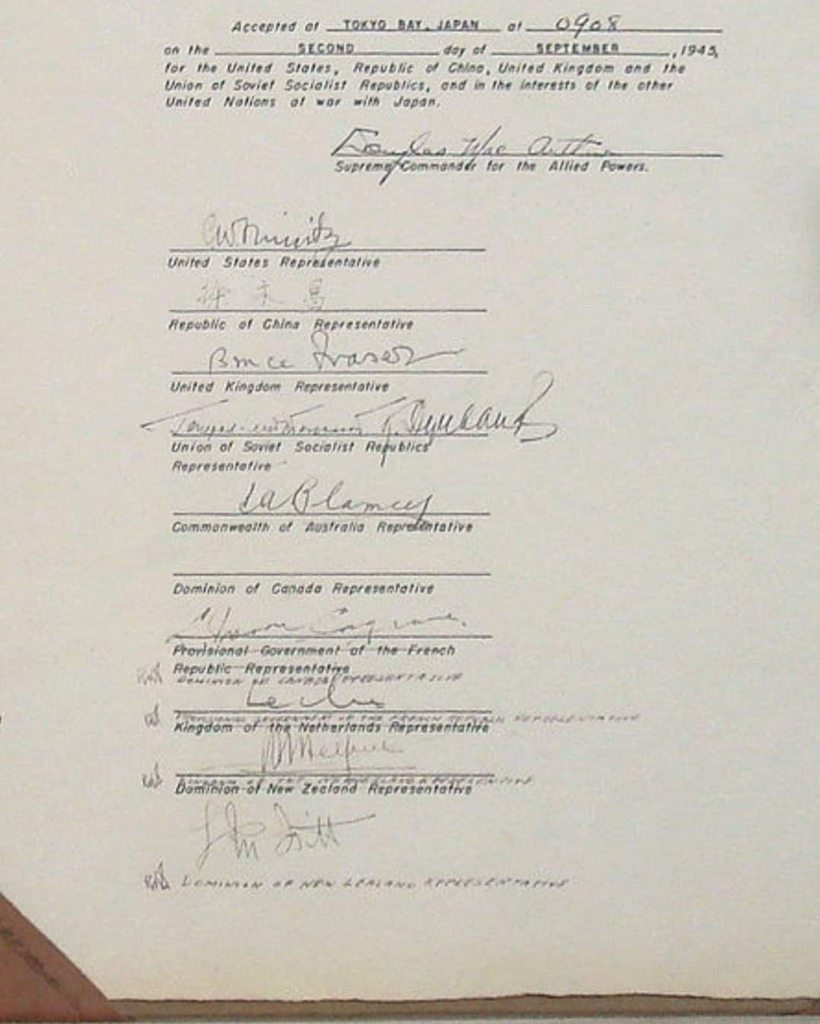 Accepted at TOKYO BAY, JAPAN at 0908
on the SECOND day of SEPTEMBER, 1945,
for the United States, Republic of China, United Kingdom and the
Union of Soviet Socialist Republics, and in the interests of the other
United Nations at war with Japan.
Douglas MacArthur
Supreme Commander for the Allied Powers.
CW Nimitz
United States Representative
Republic of China Representative
Bruce Fraser
United Kingdom Representative
Union of Soviet Socialist Republics
Representative
TA Blamey
Commonwealth of Australia Representative
Dominion of Canada Representative
Provisional Government of the French
Republic Representative
DOMINION OF CANADA REPRESENTATIVE
Leclerc
PROVISIONAL GOVERNMENT OF THE FRENCH REPUBLIC REPRESENTATIVE
Kingdom of the Netherlands Representative
KINGDOM OF THE NETHERLANDS REPRESENTATIVE
Dominion of New Zealand Representative
DOMINION OF NEW ZEALAND REPRESENTATIVE